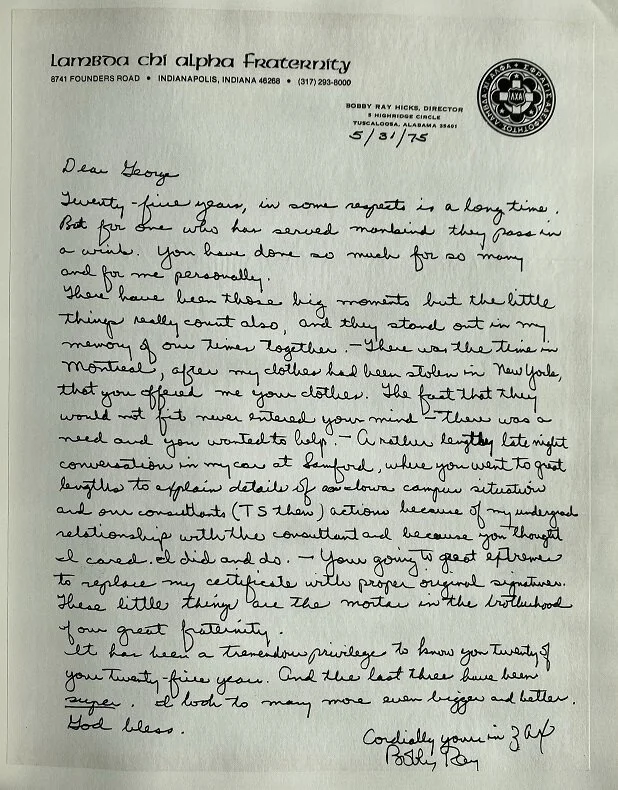 Lambda Chi Alpha Fraternity
8741 FOUNDERS ROAD • INDIANAPOLIS, INDIANA 46268 • (317) 293-8000
BOBBY RAY HICKS, DIRECTOR
5 HIGHRIDGE CIRCLE
TUSCALOOSA, ALABAMA 35401
5/31/75
Dear George
Twenty-five years, in some respects is a long time.
But for one who has served mankind they pass in
a wink. You have done so much for so many
and for me personally.
There have been those big moments but the little
things really count also, and they stand out in my
memory of our times together. — There was the time in
Montreal, after my clothes had been stolen in New York,
that you offered me your clothes. The fact that they
would not fit never entered your mind — there was a
need and you wanted to help. — A rather lengthy late night
conversation in my car at Samford, where you went to great
lengths to explain details of an Iowa campus situation
and our consultants (TS then) actions because of my undergrad
relationship with the consultant and because you thought
I cared. I did and do. — Your going to great extreme
to replace my certificate with proper original signatures.
These little things are the mortar in the brotherhood
of our great fraternity.
It has been a tremendous privilege to know you twenty of
your twenty-five years. And the last three have been
super. I look to many more even bigger and better.
God bless.
Cordially yours in ZAX
Bobby Ray